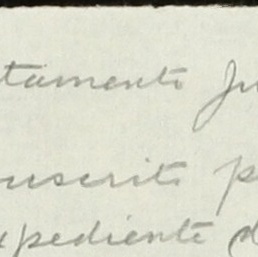 tamento Ju
uscrito p
xpediente d